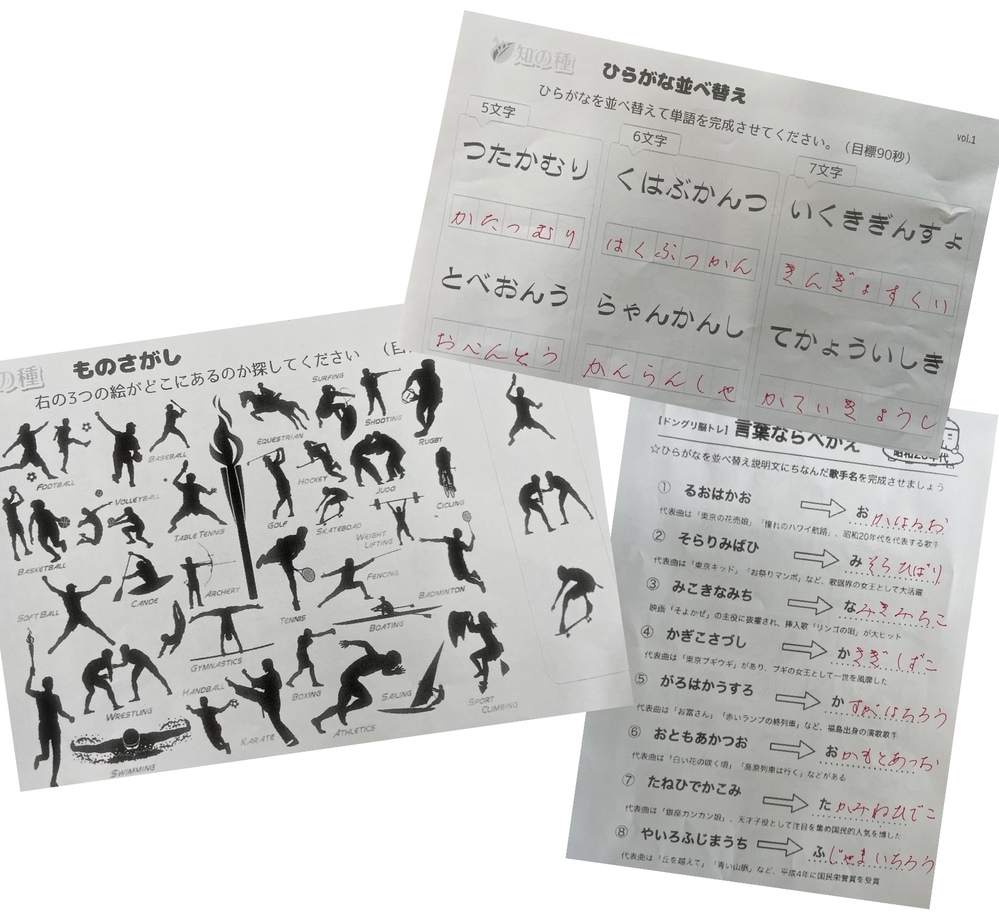 知の種
ひらがな並べ替え
vol.1
ひらがなを並べ替えて単語を完成させてください。(目標90秒)
5文字
つたかむり
かたつむり
とべおんう
おべんとう
6文字
くはぶかんつ
はくぶつかん
らゃんかんし
かんらんしゃ
7文字
いくききぎんすょ
きんぎょすくい
てかょういしき
かていきょうし
の種
ものさがし
右の3つの絵がどこにあるのか探してください
FOOTBALL
BASEBALL
EQUESTRIAN
SURFING
SHOOTING
RUGBY
VOLLEYBALL
TABLE TENNIS
GOLF
HOCKEY
JUDO
SKATEBOAD
WEIGHT LIFTING
CICLING
BASKETBALL
SOFT BALL
CANOE
ARCHERY
TENNIS
FENCING
BADMINTON
GYMNASTICS
BOATING
WRESTLING
HANDBALL
KARATE
BOXING
ATHLETICS
SAILING
SPORT CLIMBING
SWIMMING
【ドングリ脳トレ】言葉ならべかえ
昭和20年代
☆ひらがなを並べ替え説明文にちなんだ歌手名を完成させましょう
① るおはかお おかはるお
代表曲は「東京の花売娘」「憧れのハワイ航路」、昭和20年代を代表する歌手
② そらりみばひ みそらひばり
代表曲は「東京キッド」「お祭りマンボ」など、歌謡界の女王として大活躍
③ みこきなみち なみきみちこ
映画「そよかぜ」の主役に抜擢され、挿入歌「リンゴの唄」が大ヒット
④ かぎこさづし かさぎしずこ
代表曲は「東京ブギウギ」があり、ブギの女王として一世を風靡した
⑤ がろはかうすろ かすがはちろう
代表曲は「お富さん」「赤いランプの終列車」など、福島出身の演歌歌手
⑥ おともあかつお おかもとあつお
代表曲は「白い花の咲く頃」「高原列車は行く」などがある
⑦ たねひでかこみ たかみねひでこ
代表曲は「銀座カンカン娘」、天才子役として注目を集め国民的人気を博した
⑧ やいろふじまうち ふじやまいちろう
代表曲は「丘を越えて」「青い山脈」など、平成4年に国民栄誉賞を受賞